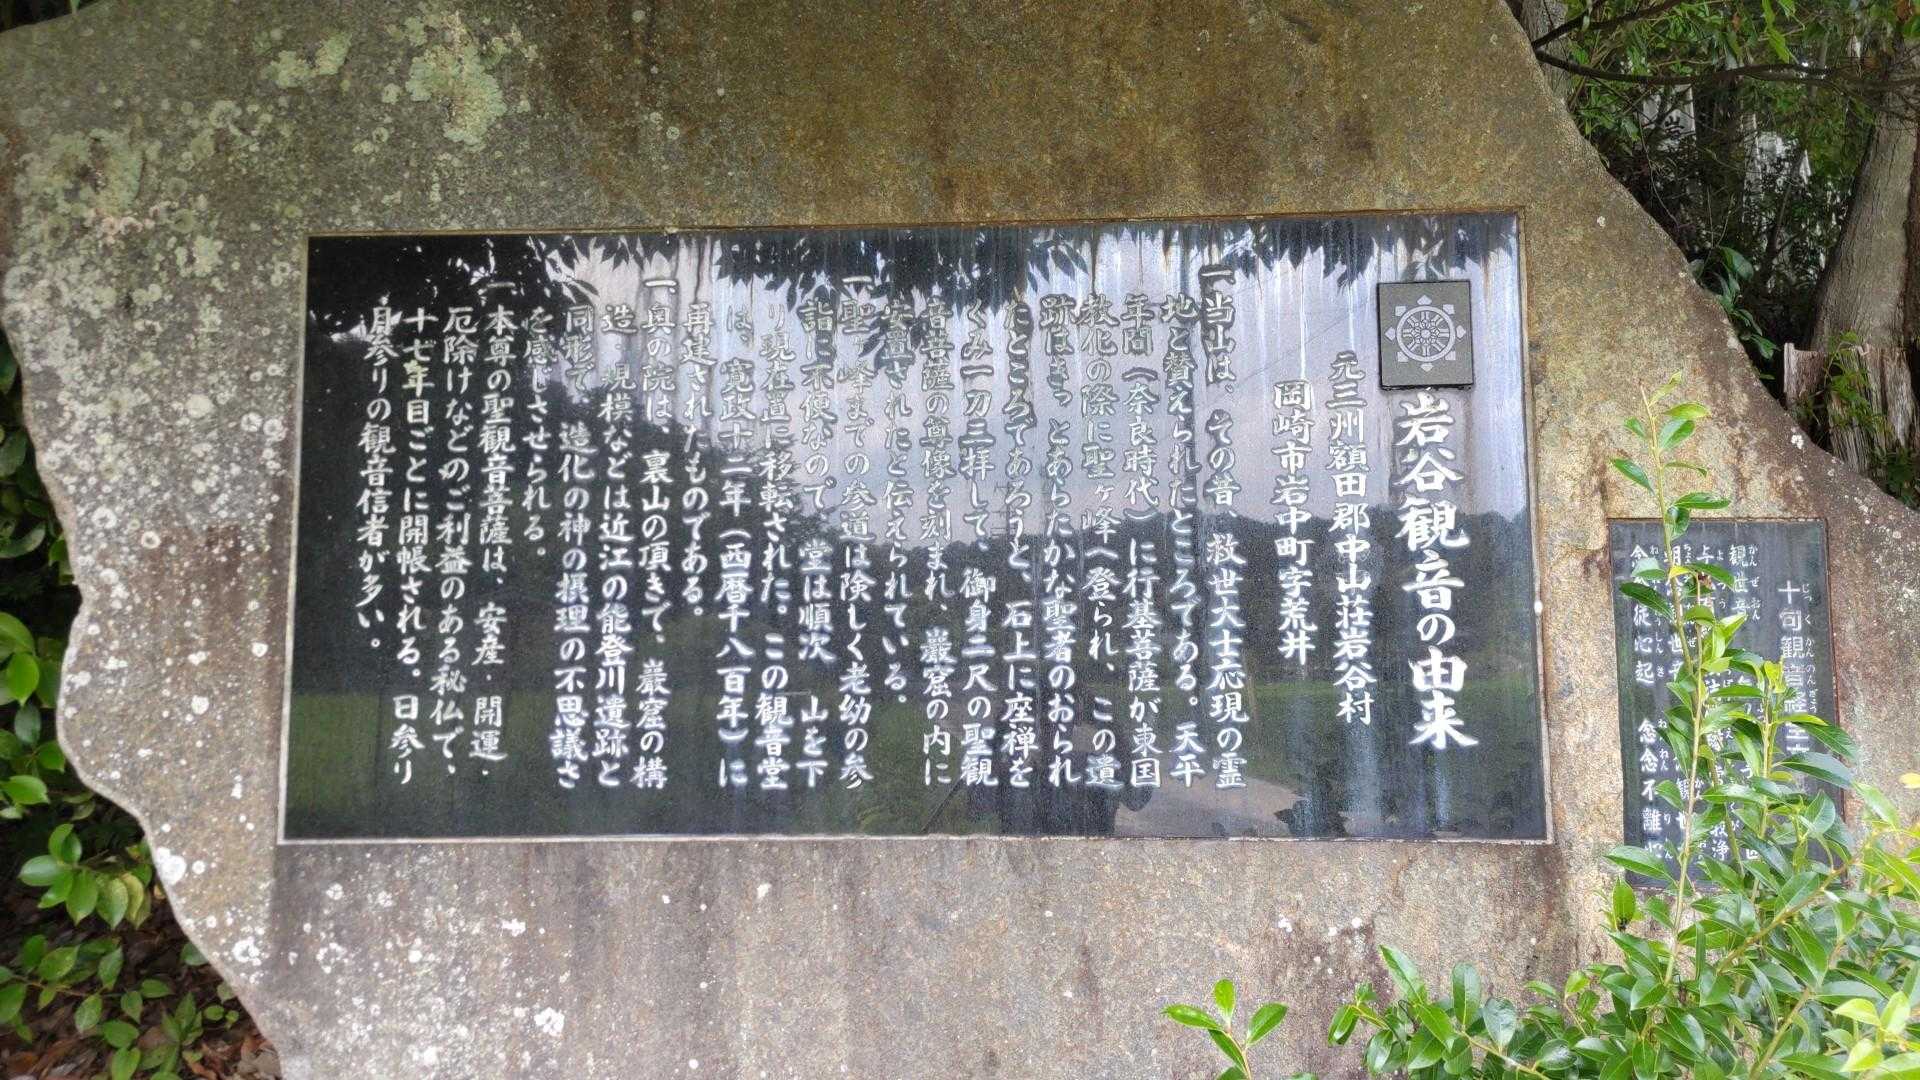 岩谷観音の由来
元三州額田郡中山荘岩谷村
岡崎市岩中町字荒井
一当山は、その昔、救世大士応現の霊
地と賛えられたところである。天平
年間（奈良時代）に行基菩薩が東国
教化の際に聖ヶ峰へ登られ、この遺
跡はきっとあらたかな聖者のおられ
たところであろうと、石上に座禅を
くみ一刀三拝して、御身二尺の聖観
音菩薩の尊像を刻まれ、巌窟の内に
安置されたと伝えられている。
一聖ヶ峰までの参道は険しく老幼の参
詣に不便なので、堂は順次 山を下
り現在道に移転された。この観音堂
は、寛政十二年（西暦千八百年）に
再建されたものである。
一奥の院は、裏山の頂きで、巌窟の構
造 規模などは近江の能登川遺跡と
同形で、造化の神の摂理の不思議さ
を感じさせられる。
一本尊の聖観音菩薩は、安産・開運・
厄除けなどのご利益のある秘仏で、
十七年目ごとに開帳される。日参り
月参りの観音信者が多い。
十句観音経
じっくかんのんぎょう
観世音
かんぜおん
念念従心起 念念不離心